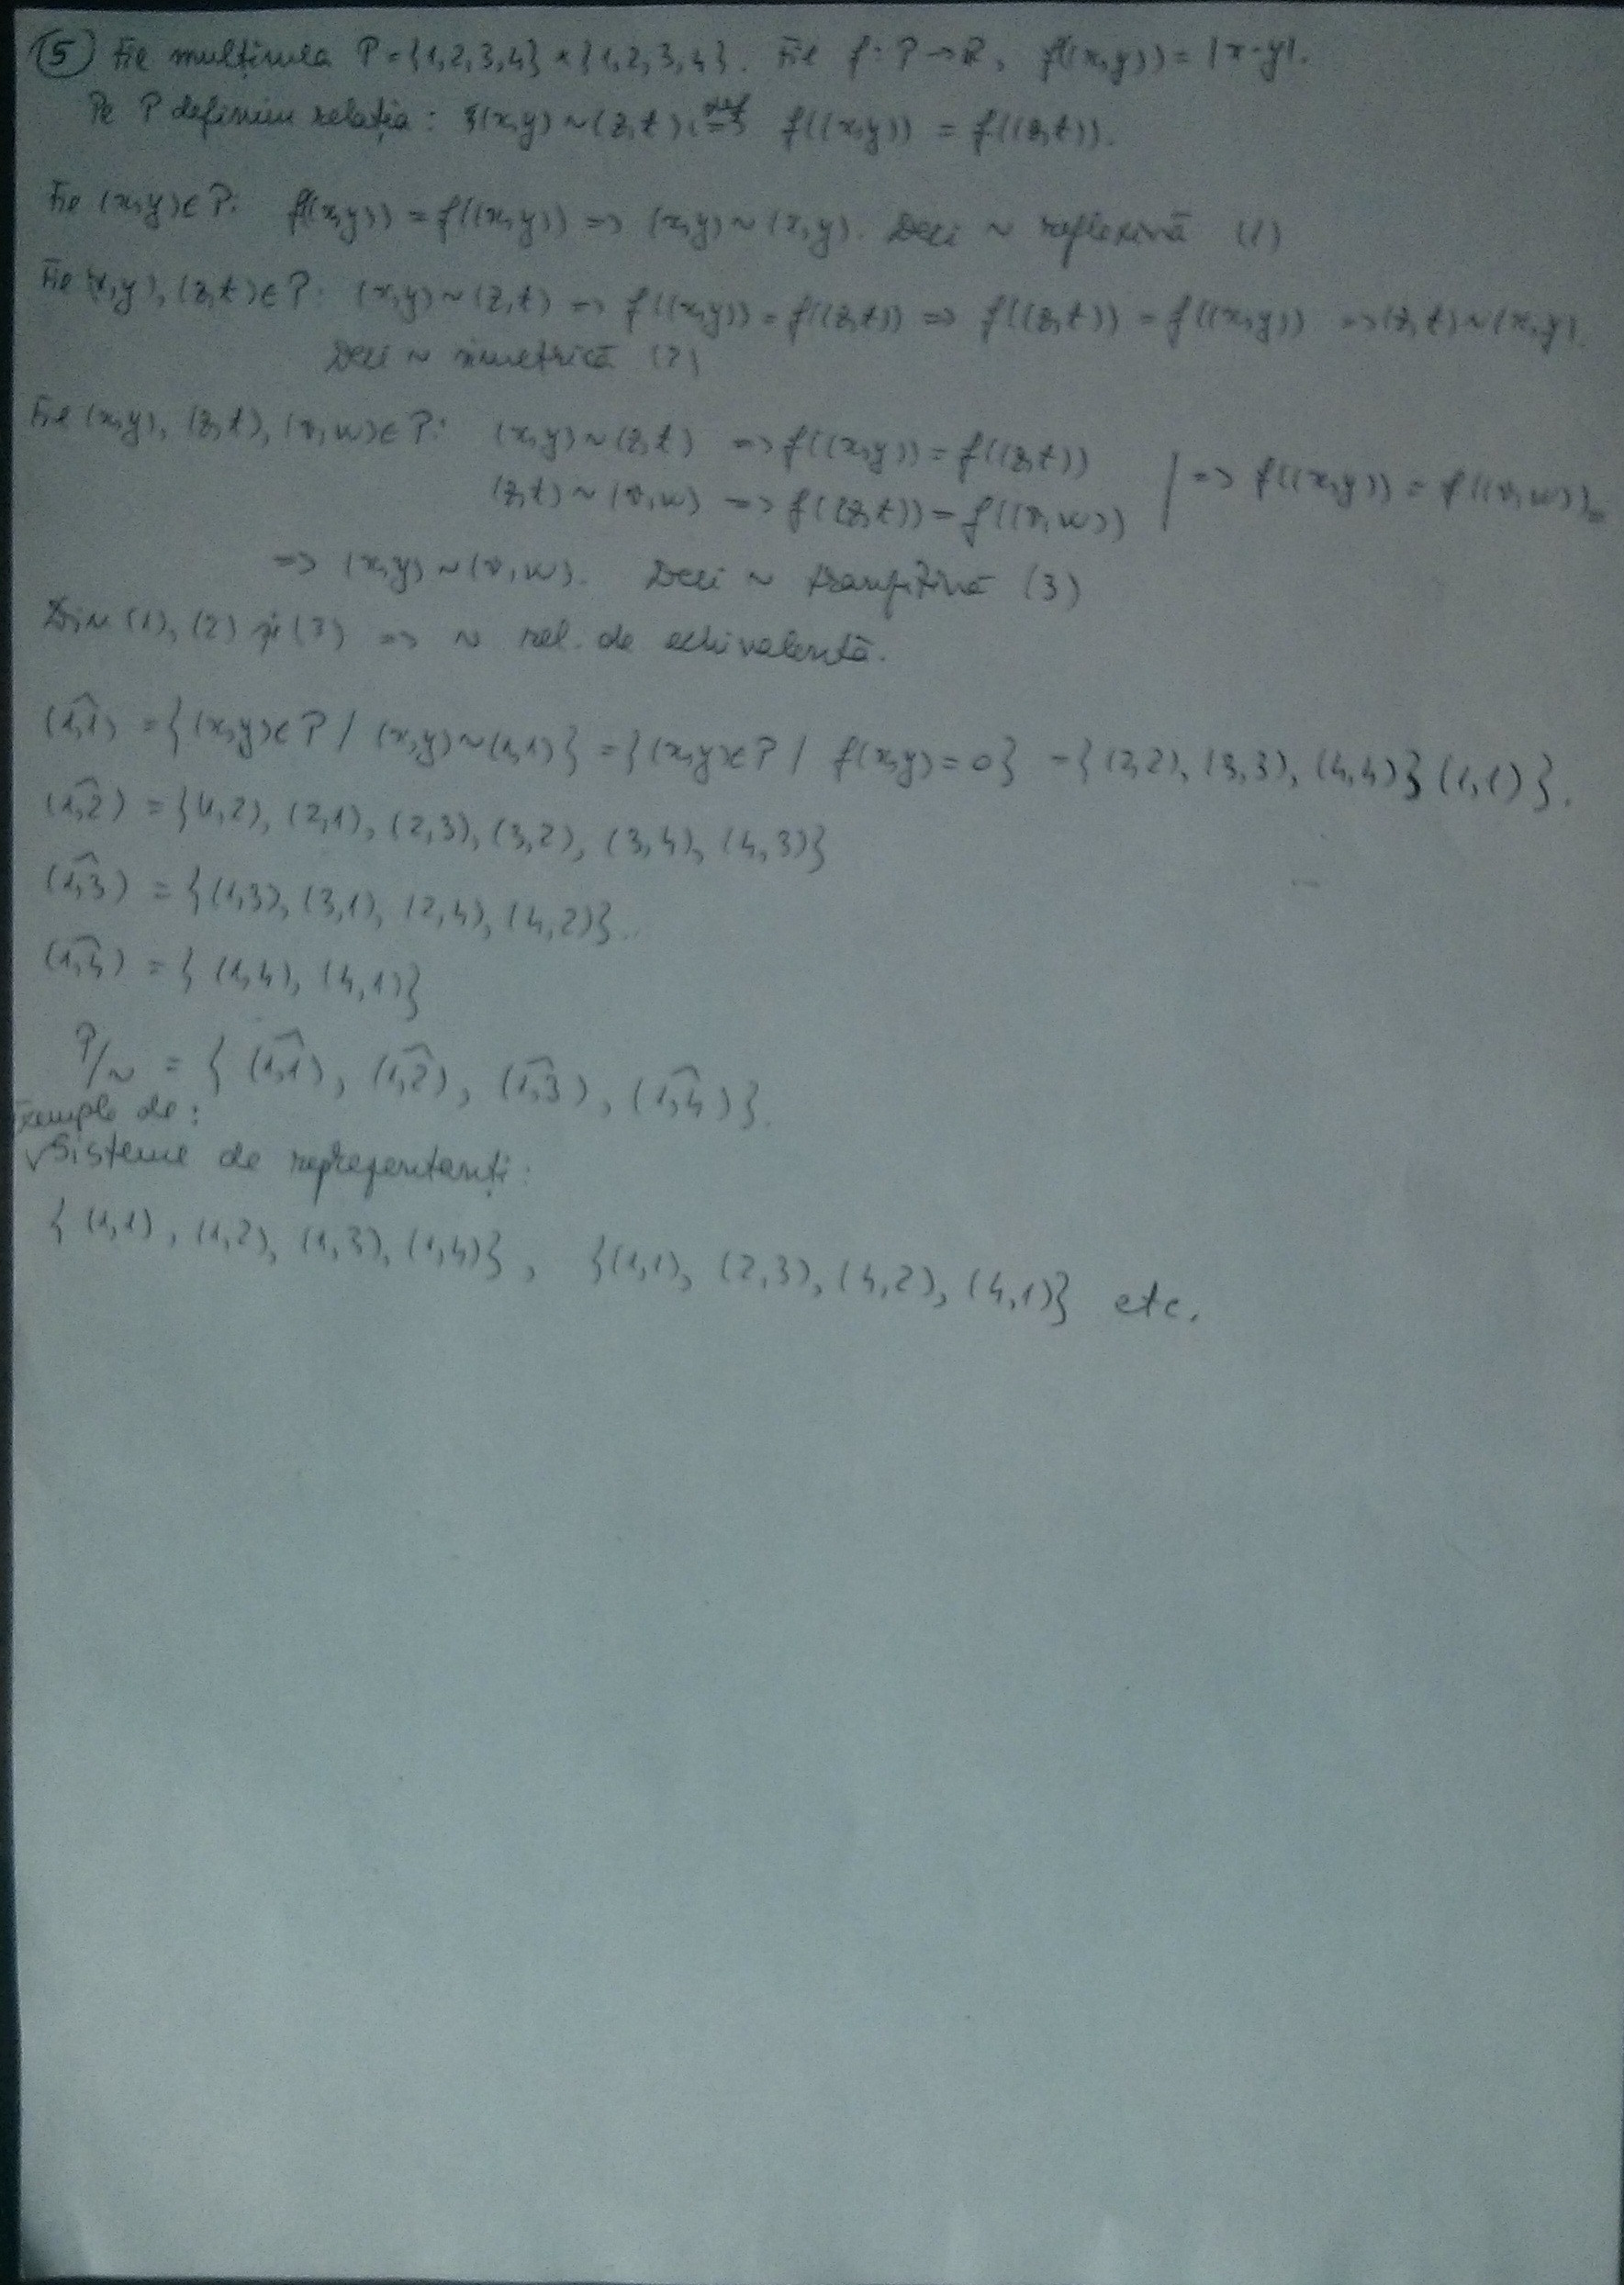 (5) Fie mulțimea P = {1,2,3,4} × {1,2,3,4}. Fie f: P → R, f((x,y)) = |x-y|.
Pe P definim relația: (x,y) ~ (z,t) <=def=> f((x,y)) = f((z,t)).
Fie (x,y) ∈ P: f((x,y)) = f((x,y)) => (x,y) ~ (x,y). Deci ~ reflexivă (1)
Fie (x,y), (z,t) ∈ P: (x,y) ~ (z,t) => f((x,y)) = f((z,t)) => f((z,t)) = f((x,y)) => (z,t) ~ (x,y).
Deci ~ simetrică (2)
Fie (x,y), (z,t), (v,w) ∈ P: (x,y) ~ (z,t) => f((x,y)) = f((z,t))
(z,t) ~ (v,w) => f((z,t)) = f((v,w)) | => f((x,y)) = f((v,w)) =
=> (x,y) ~ (v,w). Deci ~ tranzitivă (3)
Din (1), (2) și (3) => ~ rel. de echivalență.
(1,1)^ = {(x,y) ∈ P / (x,y) ~ (1,1)} = {(x,y) ∈ P / f(x,y) = 0} = {(2,2), (3,3), (4,4)} (1,1)}.
(1,2)^ = {(1,2), (2,1), (2,3), (3,2), (3,4), (4,3)}
(1,3)^ = {(1,3), (3,1), (2,4), (4,2)}.
(1,4)^ = {(1,4), (4,1)}
P/~ = {(1,1)^, (1,2)^, (1,3)^, (1,4)^}.
Exemple de:
√ Sisteme de reprezentanți:
{(1,1), (1,2), (1,3), (1,4)}, {(1,1), (2,3), (4,2), (4,1)} etc.